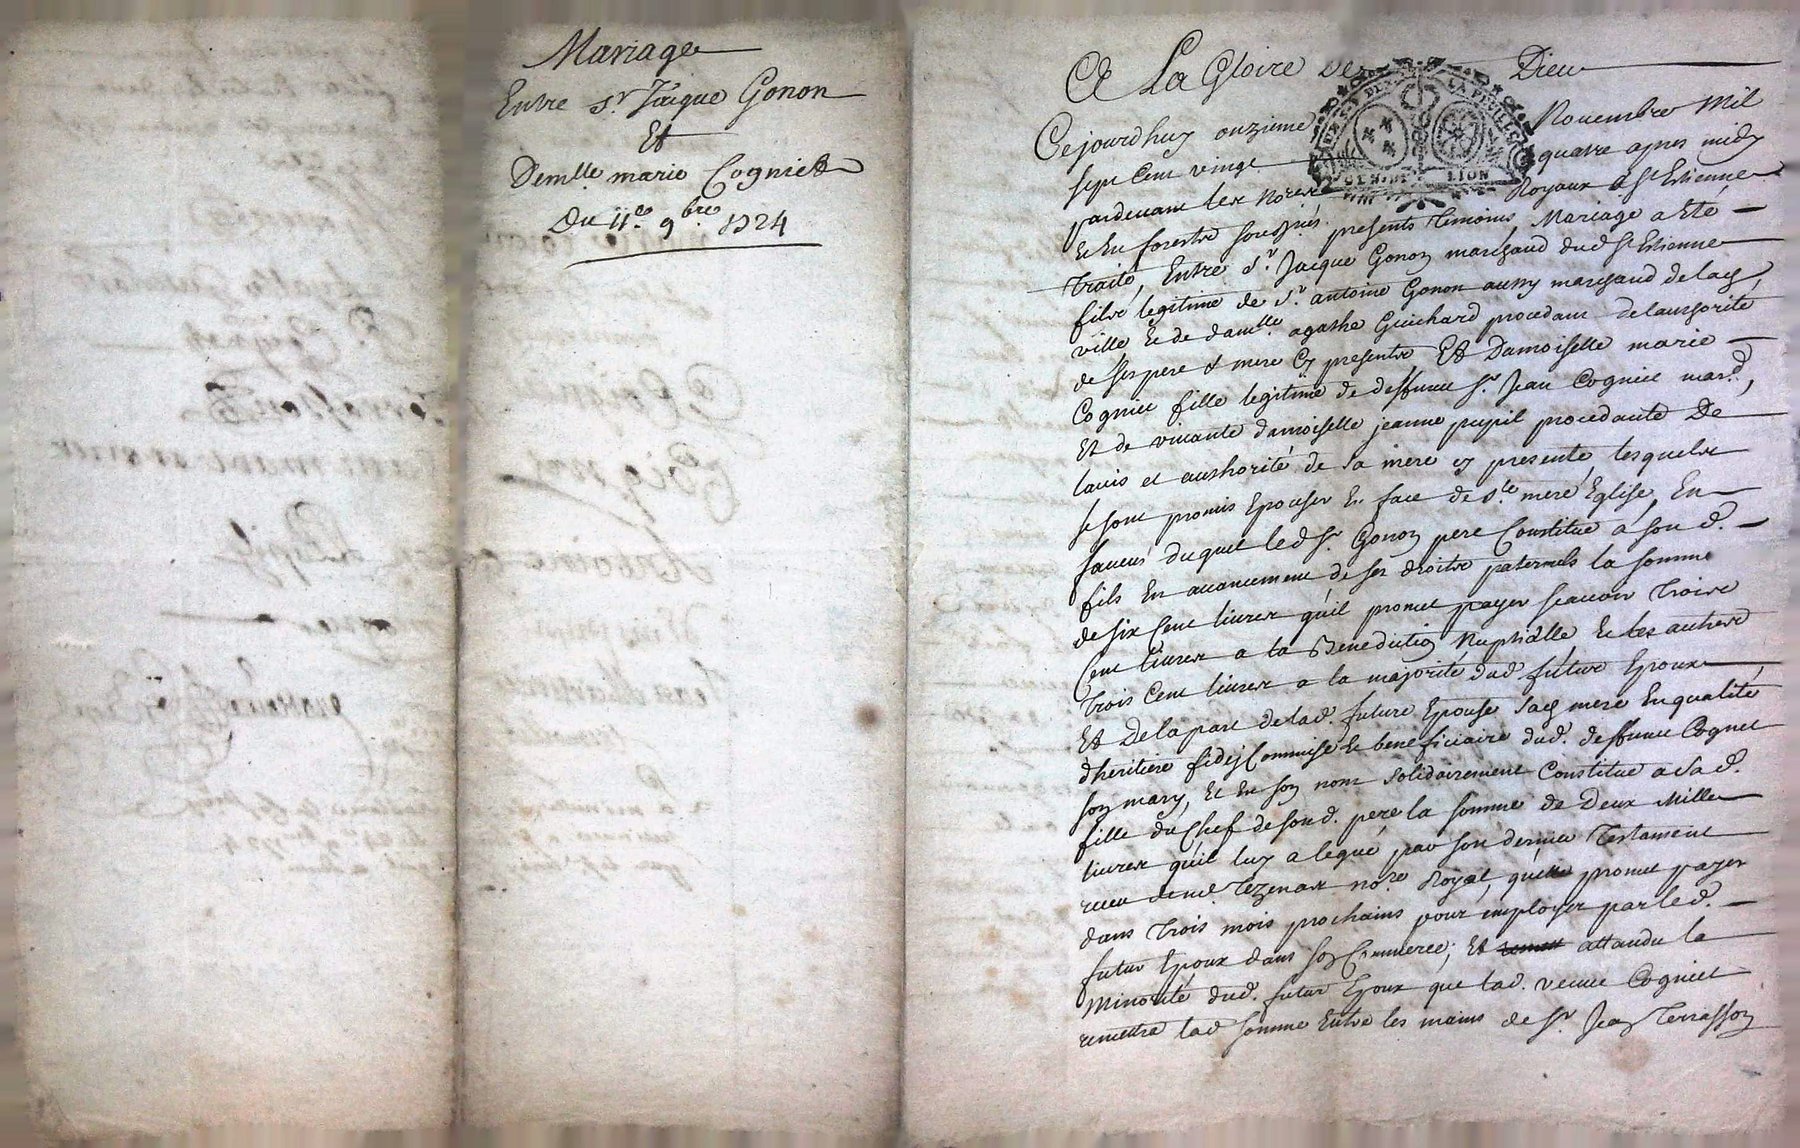 Mariage
Entre Sr. Jacque Gonon
Et
Demlle. marie Cogniet
Du 11e. 9bre. 1724
A La Gloire De Dieu
GEN. DE LION
Cejourdhuy onzieme Novembre Mil
sept Cent vingt quatre apres midy
pardevant les Nores Royaux a St Estienne
Et En forestz sousignés presents temoins, Mariage a Eté
traité, Entre Sr. Jacque Gonon marchand dud St Estienne
filz legitime de Sr. antoine Gonon aussy marchand de lad
ville Et de damlle. agathe Guichard procedant de lauthorité
de ses pere & mere cy presentz Et Damoiselle marie
Cogniet fille legitime de deffunct Sr. Jean Cogniet marchd,
Et de vivante damoiselle jeanne pupil procedante De
lavis et authorité de sa mere cy presente lesquelz
se sont promis Epouser En face de Ste. mere Eglise, En
faveur duquel led Sr. Gonon pere Constitue a son d.
fils En avancement de ses droitz paternels la somme
de six Cent livres qu'il promet payer scavoir trois
Cent livres a la Benediction Nuptialle Et les autres
trois Cent livres a la majorité dud futur Epoux
Et De la part de lad. future Epouse sad mere En qualité
dheritiere fideycommise Et beneficiaire dud. deffunct Cogniet
son mary, Et En son nom solidairement Constitue a sa d.
fille du Chef de son d. pere la somme de Deux Mille
livres qu'il luy a legué par son dernier Testament
receu de me. Tezenas nore. Royal, qu'elle promet payer
dans trois mois prochains pour employer par led.
futur Epoux dans son Commerce; Et attandu la
Minorité dud. futur Epoux que lad. veuve Cogniet
remettra lad somme Entre les mains de Sr. Jean Terrasson